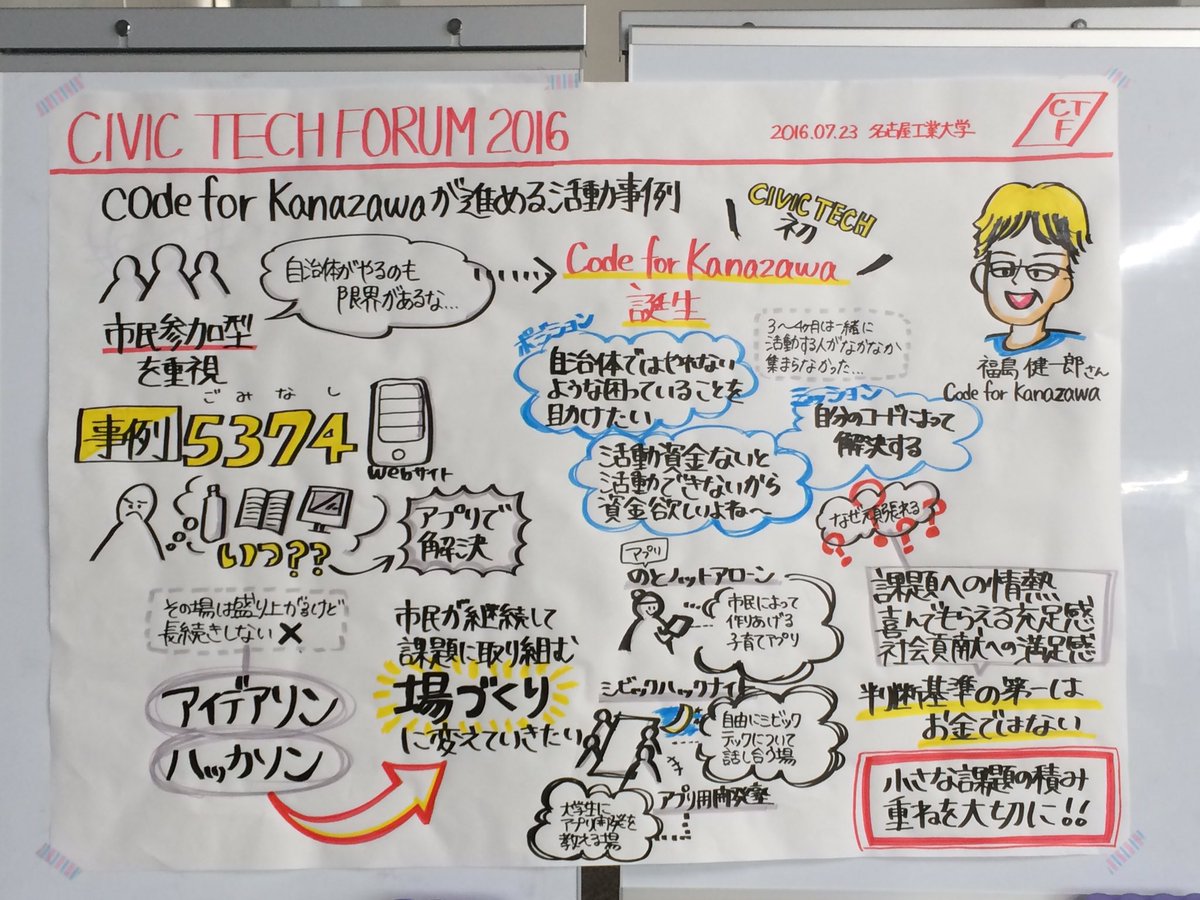 CIVIC TECH FORUM 2016
2016.07.23 名古屋工業大学
CTF
code for Kanazawaが進める活動事例
CIVIC TECH
初
自治体がやるのも
限界があるな…
Code for Kanazawa
誕生
市民参加型
を重視
福島 健一郎さん
Code for Kanazawa
3〜4ヶ月は一緒に
活動する人がなかなか
集まらなかった…
ポジション
自治体ではやれない
ような困っていることを
助けたい
ミッション
自分のコードによって
解決する
活動資金ないと
活動できないから
資金欲しいよね〜
なぜ頑張れる
???
ごみなし
事例 5374
Webサイト
いつ??
アプリで
解決
その場は盛り上がるけど
長続きしない ×
アイデアソン
ハッカソン
市民が継続して
課題に取り組む
場づくり
に変えていきたい
アプリ
のとノットアローン
市民によって
作りあげる
子育てアプリ
シビックハックナイト
自由にシビック
テックについて
話し合う場
アプリ開発塾
大学生に
アプリ開発を
教える場
課題への情熱
喜んでもらえる充足感
社会貢献への満足感
判断基準の第一は
お金ではない
小さな課題の積み
重ねを大切に!!